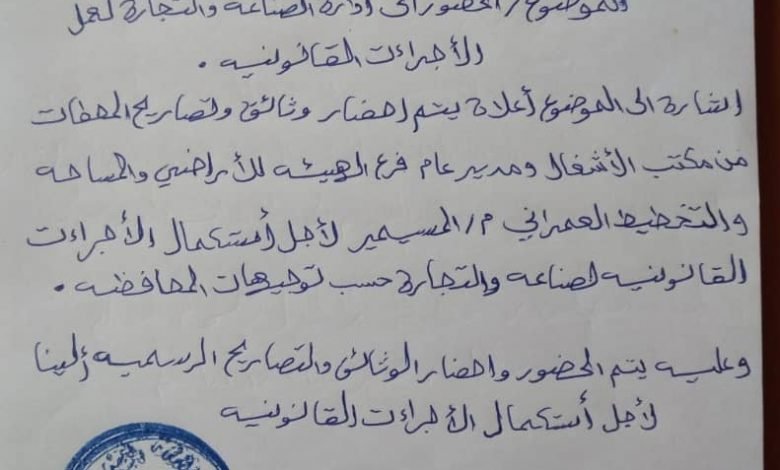 الموضوع / الحضور الى ادارة الصناعه والتجارة لعمل
الأجراءت القانونيه .
اشارة الى الموضوع أعلاة يتم احضار وثائق وتصاريح المحطات
من مكتب الأشغال ومدير عام فرع الهيئه للأراضي والمساحه
والتخطيط العمراني م/ المسيمير لأجل أستكمال الأجراءت
القانونيه لصناعه والتجارة حسب توجيهات المحافظه .
وعليه يتم الحضور واحضار الوثائق والتصاريح الرسميه ألينا
لأجل أستكمال الأجراءت القانونيه